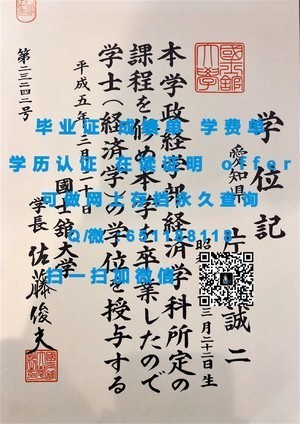 学位記
愛知県 片 誠二
昭 三月二十二日生
本学政経学部経済学科所定の
課程を修め本学を卒業したので
学士(経済学)の学位を授与する
平成五年三月二十日
國士舘大学
学長 佐藤俊夫
第二三二四二号
毕业证 成绩单 学费单
学历认证 在读证明 offer
可做网上存档永久查询
Q/微
扫一扫加微信